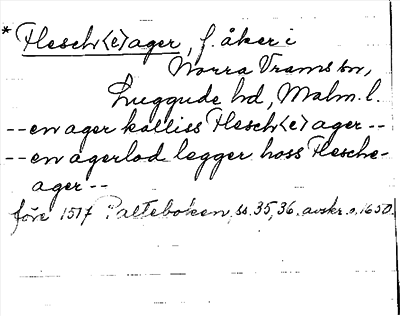 * Flesch<e>ager, f. åker i
Norra Vrams sn,
Luggude hd, Malm. l.
-- en ager kalliss Flesch<e>ager --
-- en agerlod legger hoss Flesche-
ager --
före 1517 Palteboken, ss. 35, 36. avskr. o. 1650.